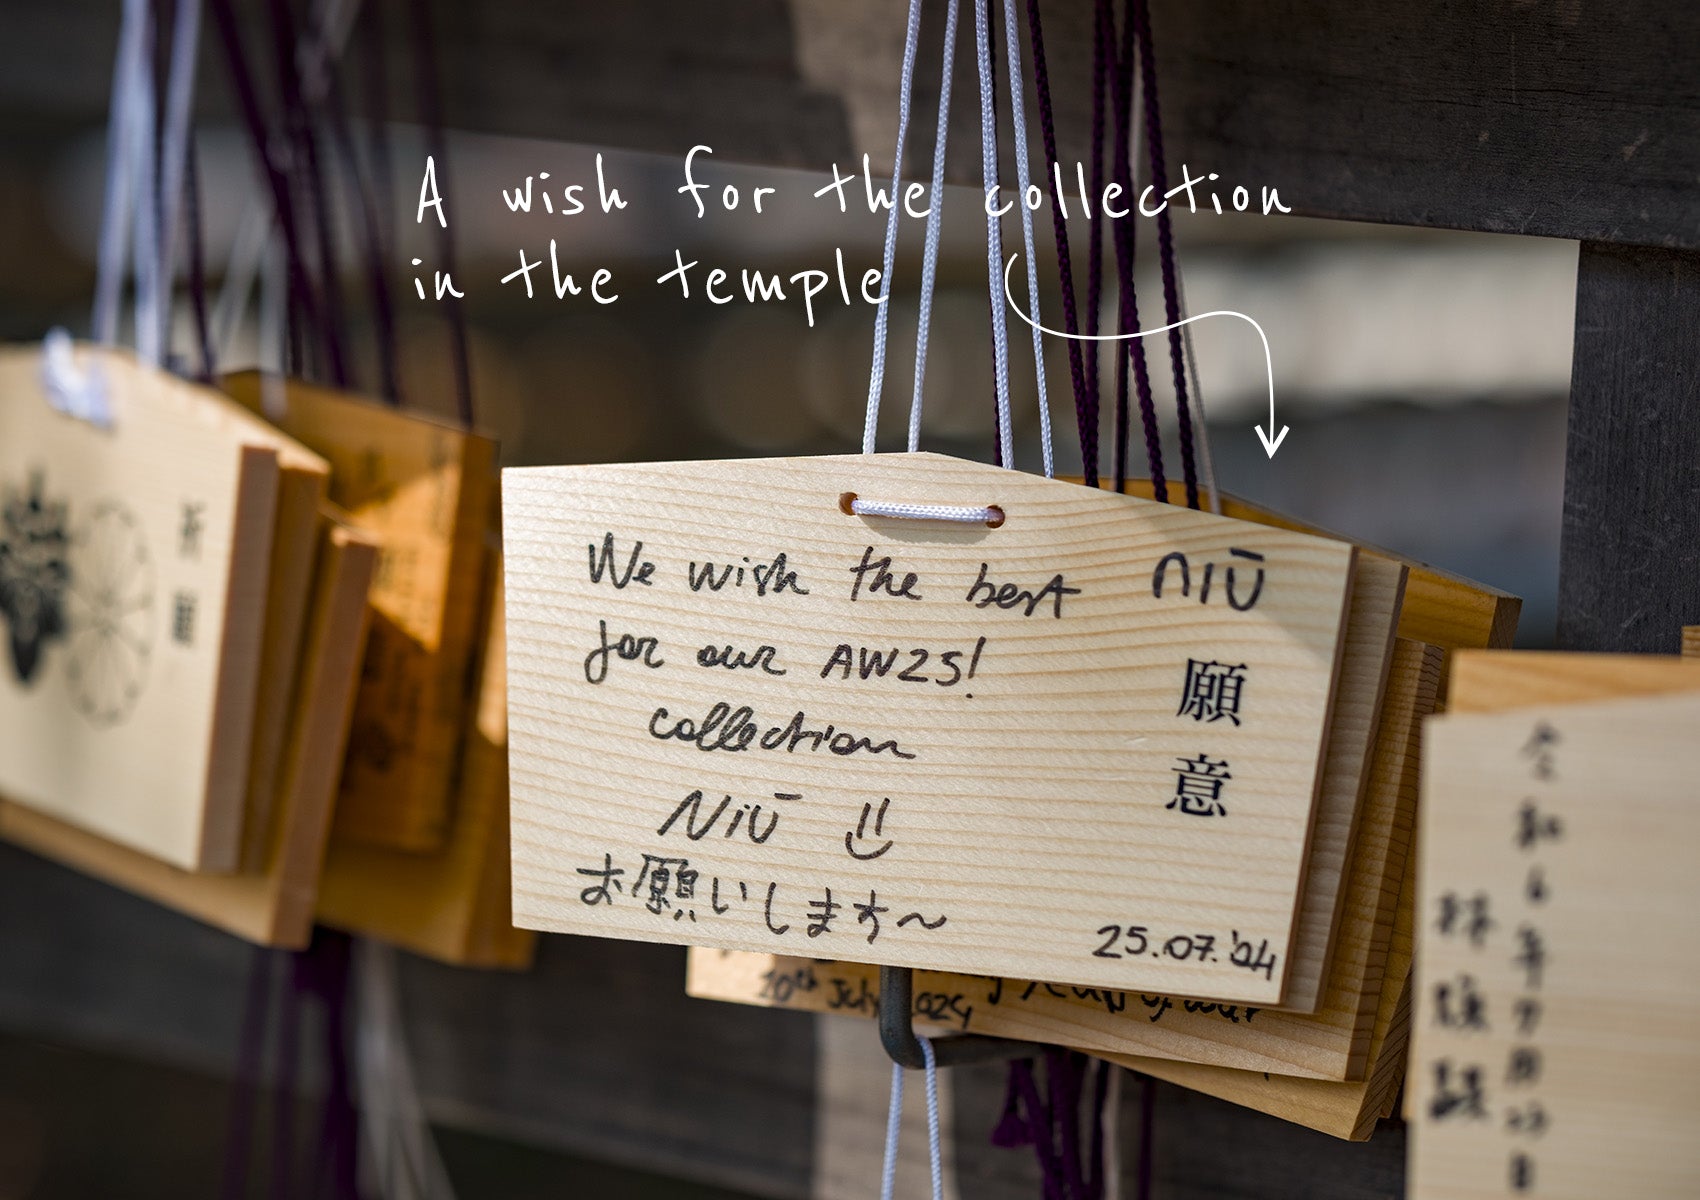 A wish for the collection
in the temple
We wish the best
for our AW25!
collection
Niū
お願いします〜
niū
願意
25.07.'24
10th July 2024
祈願
令和6年7月
林